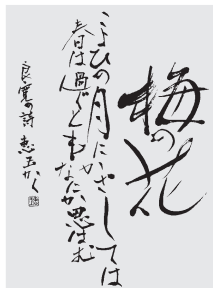 梅の花
こよひの月にかざしては
春は過ぐとも
なにか思はむ
良寛の詩 恵玉かく